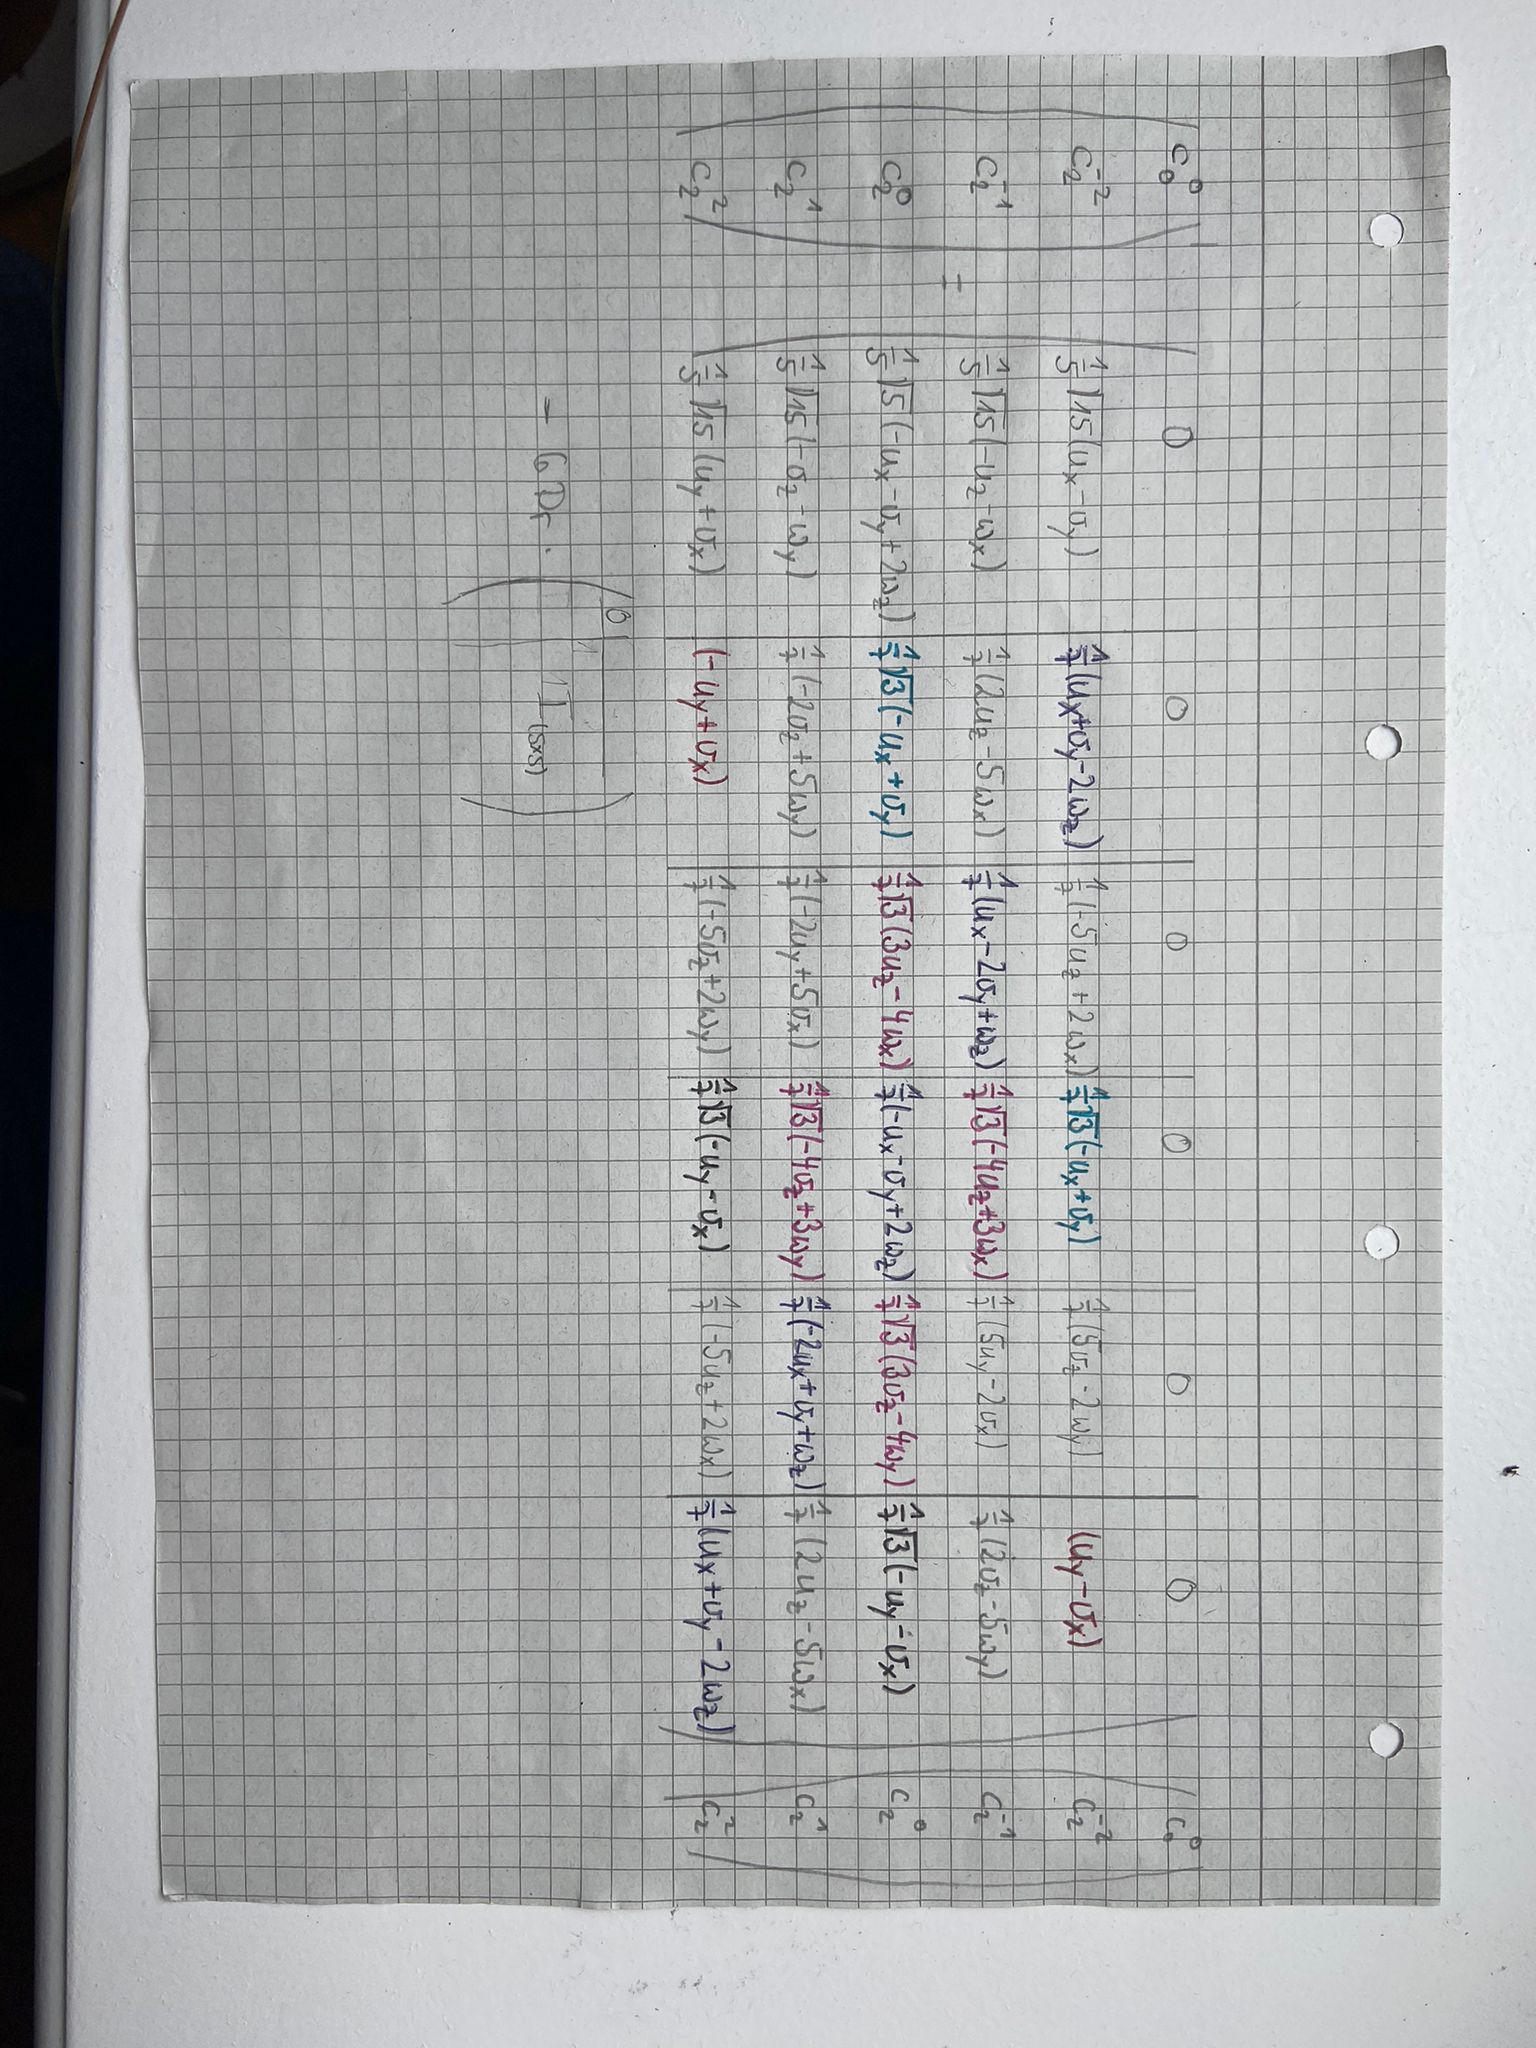 c₀⁰ 0 0 0 0 0 0 c₀⁰
c₂⁻² 1/5 √15(uₓ-v_y) 1/7(uₓ+v_y-2w_z) 1/7(-5u_z+2wₓ) 1/7√3(-uₓ+v_y) 1/7(5v_z-2w_y) (u_y-vₓ) c₂⁻²
c₂⁻¹ 1/5 √15(-u_z-wₓ) 1/7(2u_z-5wₓ) 1/7(uₓ-2v_y+w_z) 1/7√3(-4u_z+3wₓ) 1/7(5u_y-2vₓ) 1/7(2v_z-5w_y) c₂⁻¹
=
c₂⁰ 1/5 √5(-uₓ-v_y+2w_z) 1/7√3(-uₓ+v_y) 1/7√3(3u_z-4wₓ) 1/7(-uₓ-v_y+2w_z) 1/7√3(3v_z-4w_y) 1/7√3(-u_y-vₓ) c₂⁰
c₂¹ 1/5 √15(-v_z-w_y) 1/7(-2v_z+5w_y) 1/7(-2u_y+5vₓ) 1/7√3(-4v_z+3w_y) 1/7(-2uₓ+v_y+w_z) 1/7(2u_z-5wₓ) c₂¹
c₂² 1/5 √15(u_y+vₓ) (-u_y+vₓ) 1/7(-5v_z+2w_y) 1/7√3(-u_y-vₓ) 1/7(-5u_z+2wₓ) 1/7(uₓ+v_y-2w_z) c₂²
0
- 6 Dr · 1I(5x5)